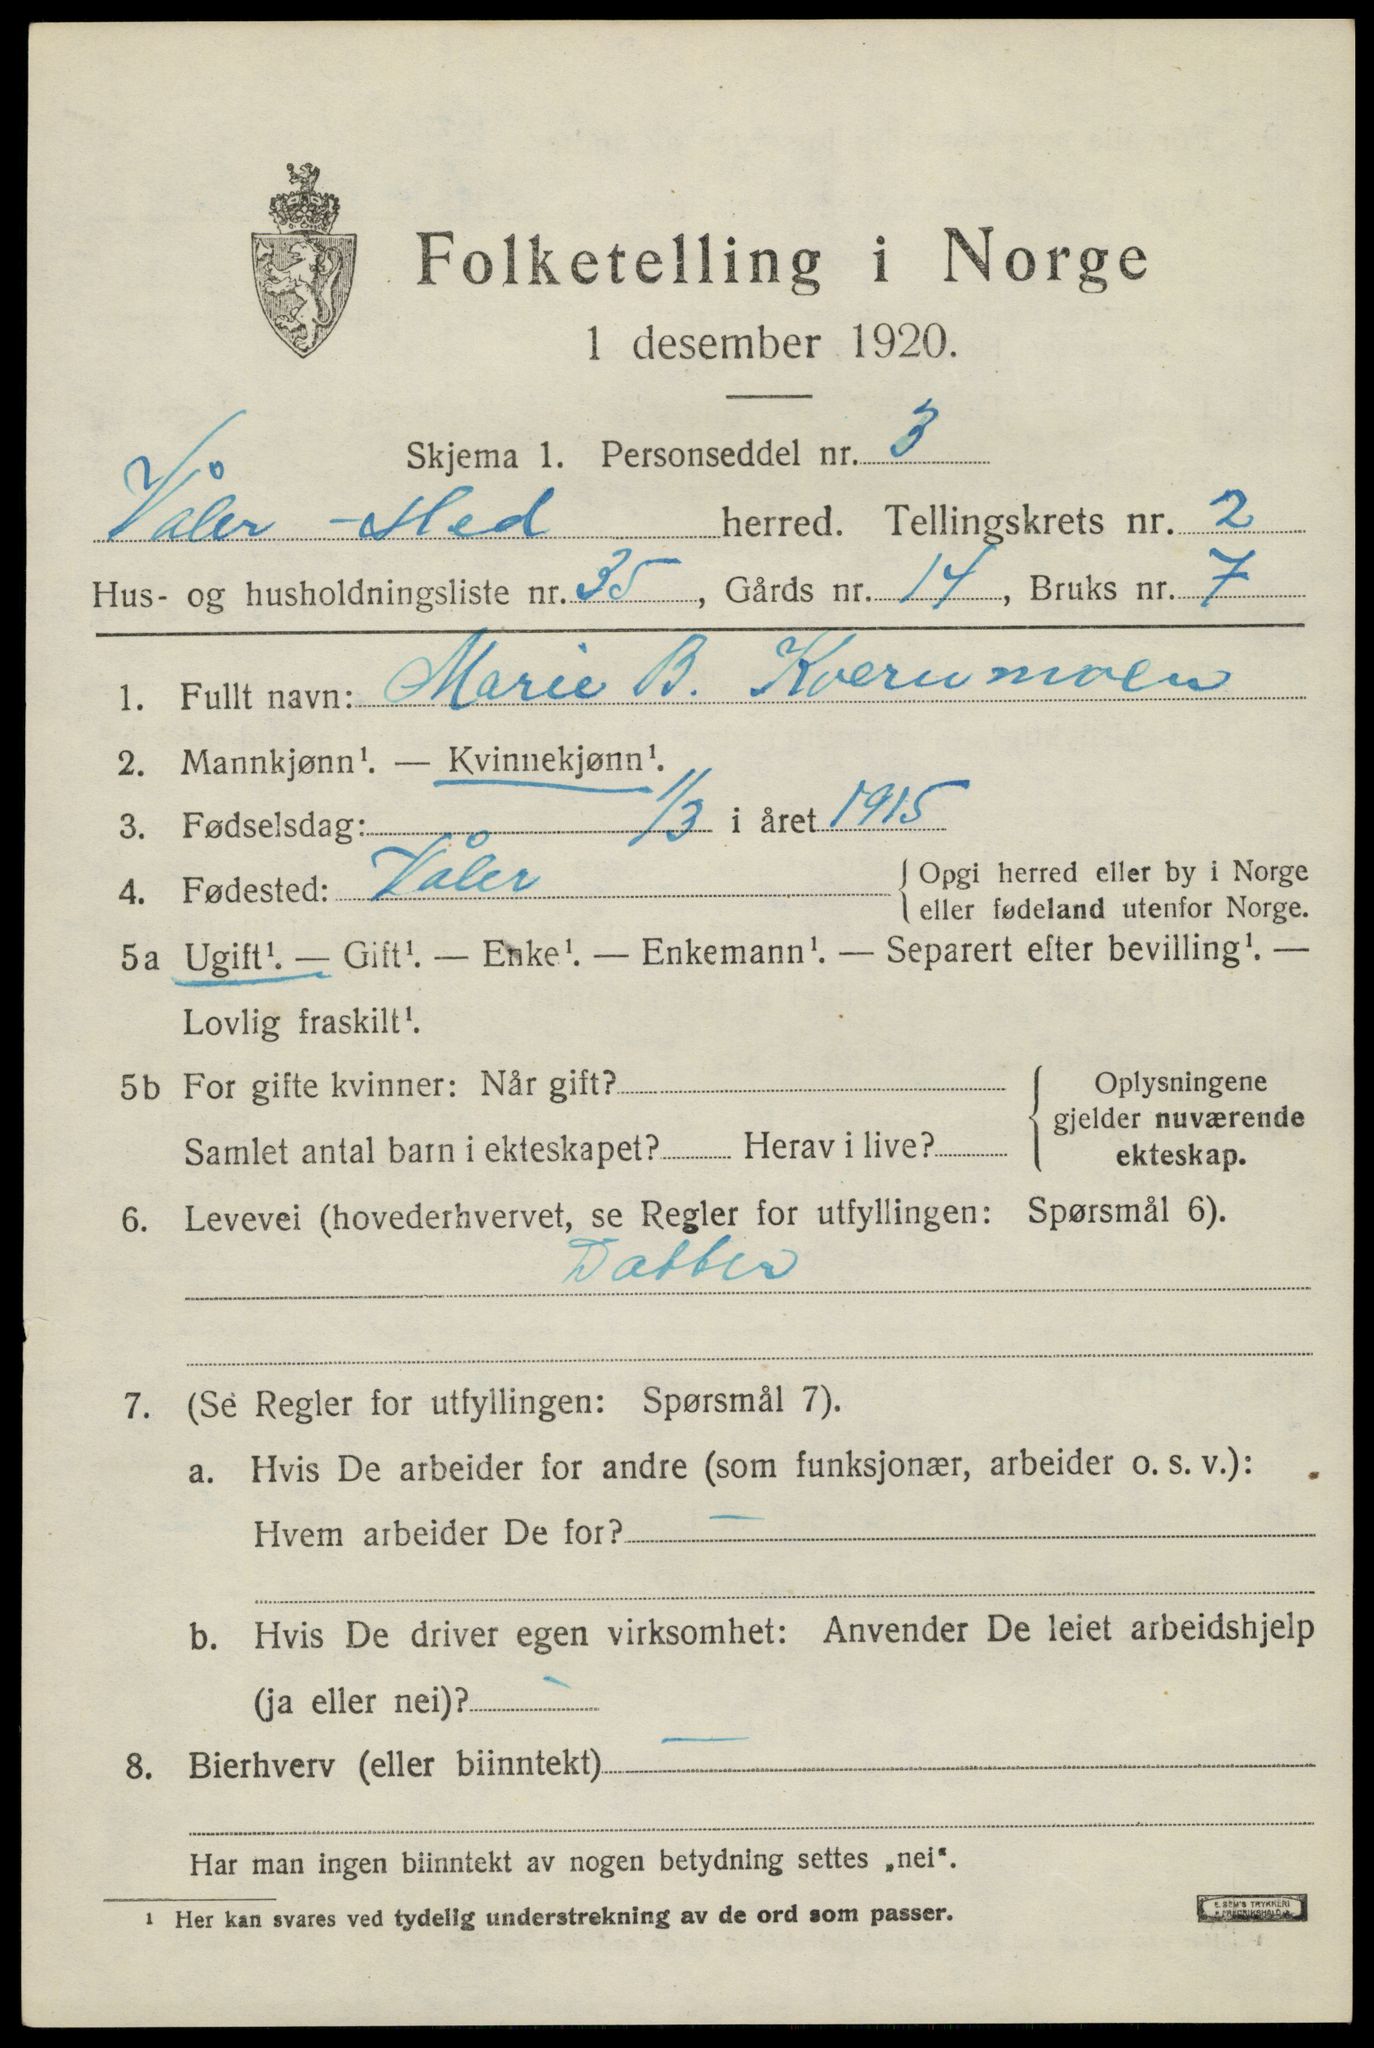 Folketelling i Norge
1 desember 1920.
Skjema 1. Personseddel nr. 3
Våler - Hed herred. Tellingskrets nr. 2
Hus- og husholdningsliste nr. 35, Gårds nr. 14, Bruks nr. 7
1. Fullt navn: Marie B. Kvernmoen
2. Mannkjønn¹. — Kvinnekjønn¹.
3. Fødselsdag: 1/3 i året 1915
4. Fødested: Våler { Opgi herred eller by i Norge
eller fødeland utenfor Norge.
5a Ugift¹. — Gift¹. — Enke¹. — Enkemann¹. — Separert efter bevilling¹. —
Lovlig fraskilt¹.
5b For gifte kvinner: Når gift? { Oplysningene
gjelder nuværende
Samlet antal barn i ekteskapet? Herav i live? ekteskap.
6. Levevei (hovederhvervet, se Regler for utfyllingen: Spørsmål 6).
Datter
7. (Se Regler for utfyllingen: Spørsmål 7).
a. Hvis De arbeider for andre (som funksjonær, arbeider o. s. v.):
Hvem arbeider De for? —
b. Hvis De driver egen virksomhet: Anvender De leiet arbeidshjelp
(ja eller nei)? -
8. Bierhverv (eller biinntekt) —
Har man ingen biinntekt av nogen betydning settes „nei“.
¹ Her kan svares ved tydelig understrekning av de ord som passer.
E. SEM'S TRYKKERI
FREDRIKSHALD